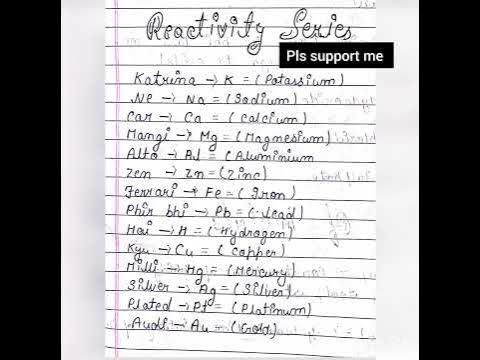 Reactivity Series
Pls support me
Katrina → K = (Potassium)
Ne → Na = (Sodium)
Car → Ca = (Calcium)
Mangi → Mg = (Magnesium)
Alto → Al = (Aluminium
Zen → Zn = (Zinc)
Ferrari → Fe = (Iron)
Phir bhi → Pb = (Lead)
Hai → H = (Hydrogen)
Kyu → Cu = (Copper)
Milli → Hg = (Mercury)
Silver → Ag = (Silver)
Plated → Pt = (Platinum)
Audi → Au = (Gold)